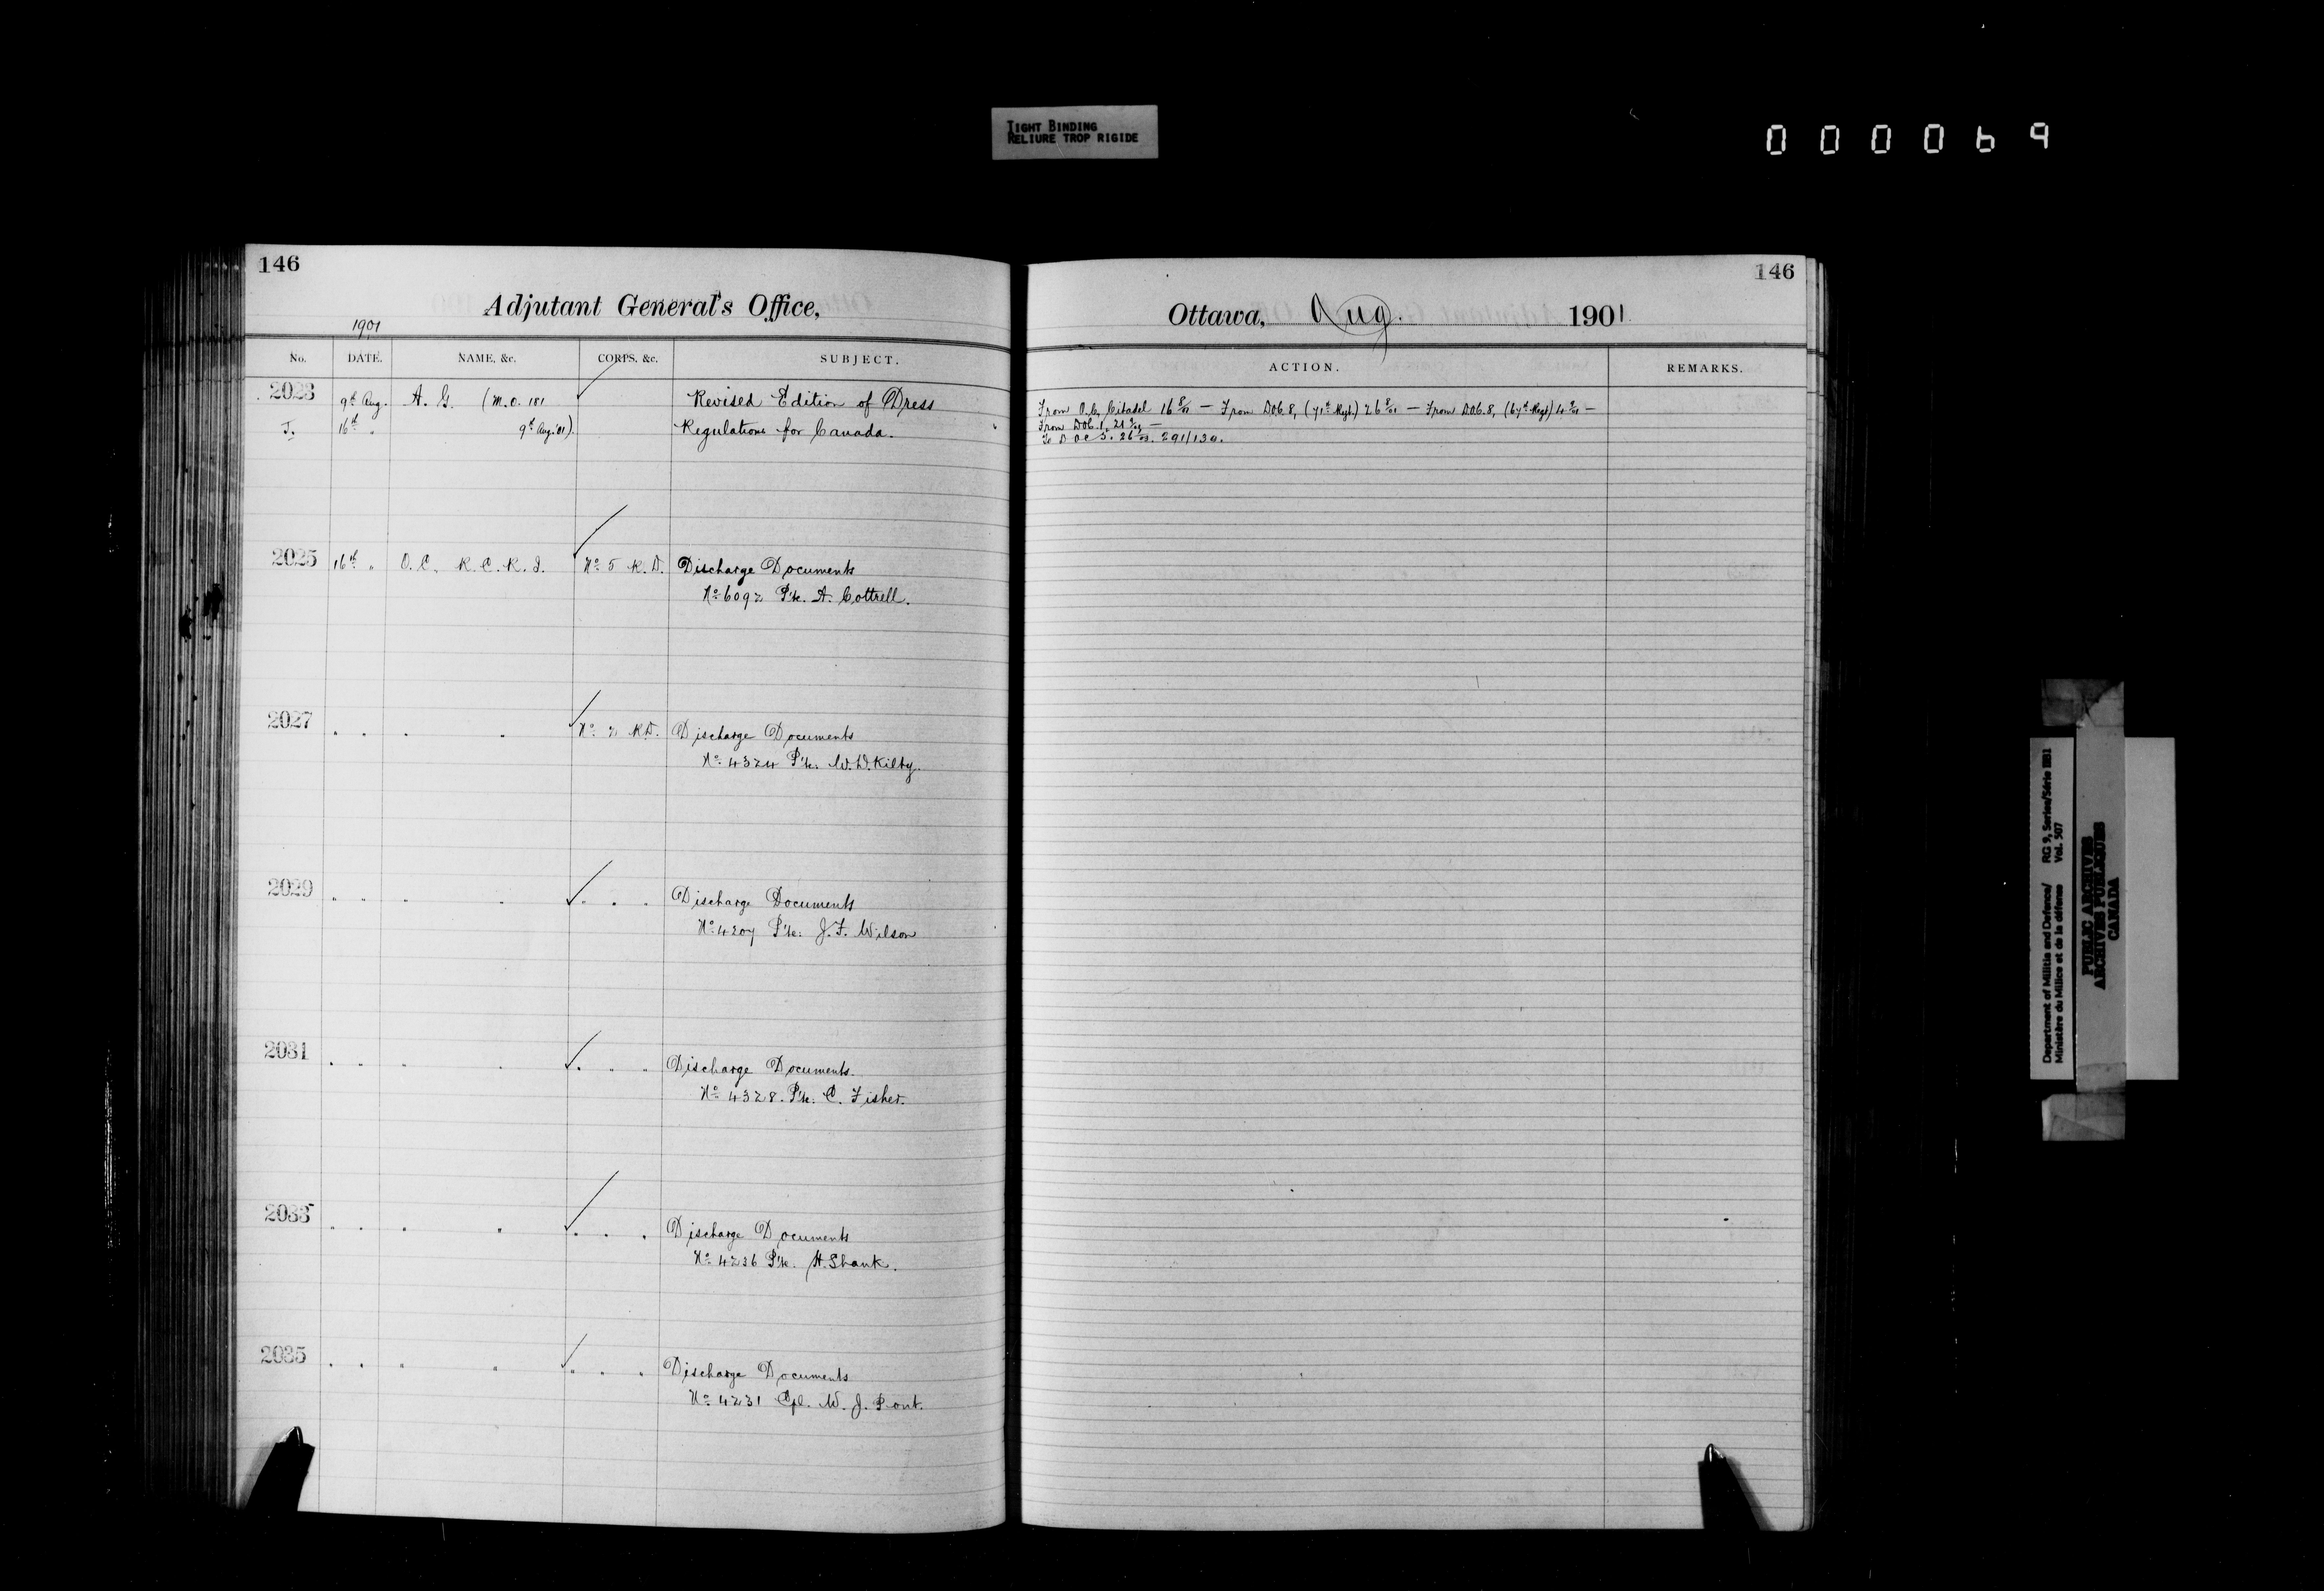 TIGHT BINDING
RELIURE TROP RIGIDE
000069
146
Adjutant General's Office,
1901
No. DATE. NAME, &c. CORPS, &c. SUBJECT.
2023 9th Aug. A. G. (M.O. 181 Revised Edition of Dress
J. 16th " 9th Aug. '01). Regulations for Canada.
2025 16th " O.C. R.C.R.I. No 5 R.D. Discharge Documents
No 6092 Pte. A. Cottrell.
2027 " " " " No 2 R.D. Discharge Documents
No 4324 Pte. W.D. Kilby.
2029 " " " " " " " Discharge Documents
No 4207 Pte. J.F. Wilson
2031 " " " " " " " Discharge Documents.
No 4328. Pte. C. Fisher.
2033 " " " " " " " Discharge Documents
No 4236 Pte. H. Shank.
2035 " " " " " " " Discharge Documents
No 4231 Cpl. W. J. Pont.
146
Ottawa, Aug. 1901
ACTION. REMARKS.
From O.C. Citadel 16 8/01 — From DOC. 8, (71st Regt) 26 8/01 — From DOC. 8, (67th Regt) 4 9/01 —
From DOC. 1, 21
To D O C 3. 26 291/130.
Department of Militia and Defence/ RG 9, Series/Série IIB1
Ministère du Milice et de la défense Vol. 507
PUBLIC ARCHIVES
ARCHIVES PUBLIQUES
CANADA